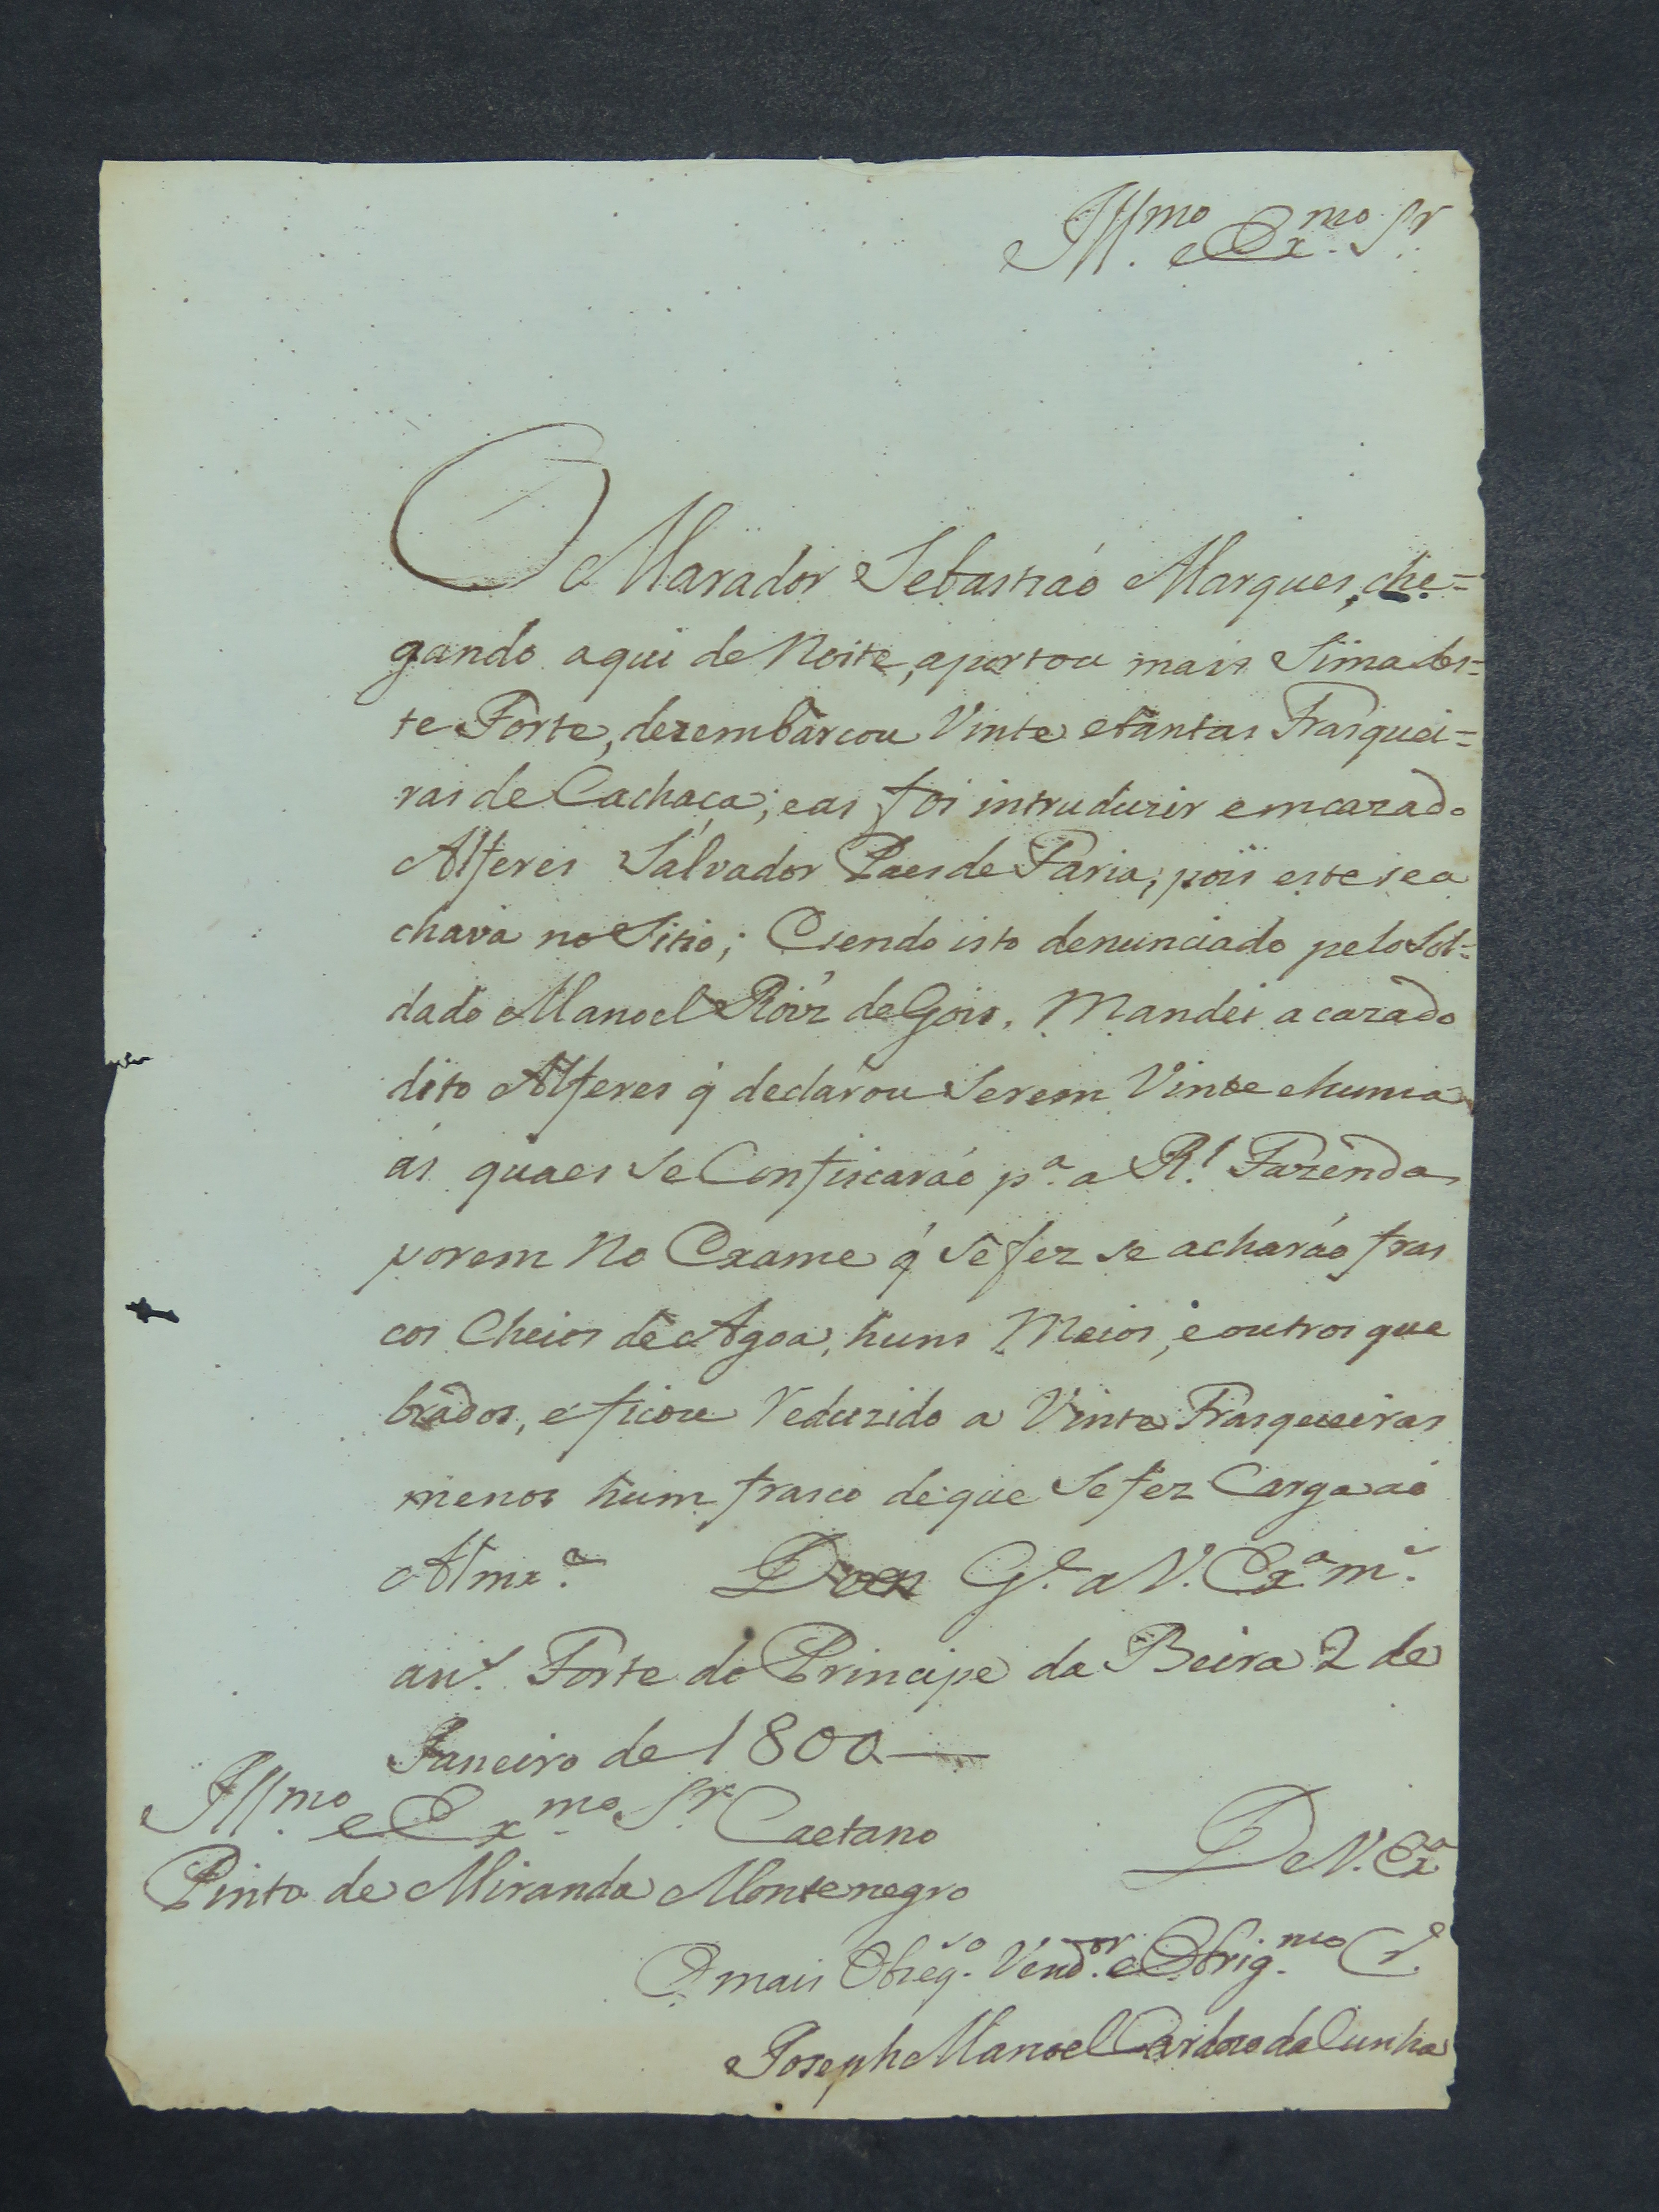 Illmo. e Exmo. Sr.
O Marador Sebastiaó Marques, che=
gando aqui de Noite, aportou mais Sima des=
te Forte, dezembarcou Vinte etantas Frasquei=
ras de Cachaça; eas foi intruduzir emcazado
Alferes Salvador Paes de Faria; pois estesea
chava no Sitio; Esendo isto denunciado pelo Sol=
dado Manoel Roiz de Gois, Mandei a cazado
dito Alferes q̃ declarou Serem Vinte ehuma
as quaes se Confiscaraó pa. a Rl. Fazenda
porem No Exame q̃ sefez se acharaó fras
cos Cheios de Agoa, huns Meios, e outros que
brados, e ficou Reduzido a Vinte Frasqueiras
menos hum frasco deque Sefez Carga aó
Almx.e Deos Ge. a V. Exa. ms.
ans. Forte do Principe da Beira 2 de
Janeiro de 1800
Illmo. e Exmo. Sr. Caetano
Pinto de Miranda Montenegro
De V. Exa
O mais Obzeqo. Vendor. e Obrigmo. Ce.
Joseph Manoel Cardozo da Cunha